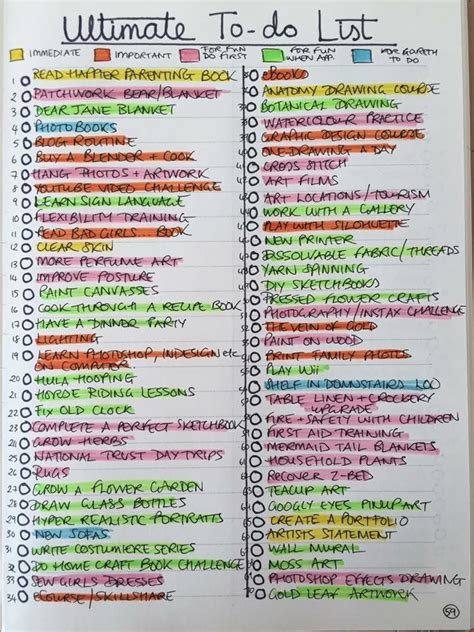 Ultimate To-do List
IMMEDIATE
IMPORTANT
FOR FUN DO FIRST
FOR FUN WHEN APP.
FOR GARETH TO DO
1 READ HAPPIER PARENTING BOOK
2 PATCHWORK BEAR/BLANKET
3 DEAR JANE BLANKET
4 PHOTOBOOKS
5 BLOG ROUTINE
6 BUY A BLENDER + COOK
7 HANG PHOTOS + ARTWORK
8 YOUTUBE VIDEO CHALLENGE
9 LEARN SIGN LANGUAGE
10 FLEXIBILITY TRAINING
11 READ BAD GIRLS... BOOK
12 CLEAR SKIN
13 MORE PERFUME ART
14 IMPROVE POSTURE
15 PAINT CANVASSES
16 COOK THROUGH A RECIPE BOOK
17 HAVE A DINNER PARTY
18 LIGHTING
19 LEARN PHOTOSHOP, INDESIGN etc
ON COMPUTER
20 HULA HOOPING
21 RIDING LESSONS
22 FIX OLD CLOCK
23 COMPLETE A PERFECT SKETCHBOOK
24 GROW HERBS
25 NATIONAL TRUST DAY TRIPS
26 RUGS
27 GROW A FLOWER GARDEN
28 DRAW GLASS BOTTLES
29 HYPER REALISTIC PORTRAITS
30 NEW SOFAS
31 WRITE COSTUMIERE SERIES
32 DO HOME CRAFT BOOK CHALLENGE
33 SEW GIRLS DRESSES
34 eCOURSE/SKILLSHARE
eBOOKS
ANATOMY DRAWING COURSE
BOTANICAL DRAWING
WATERCOLOUR PRACTICE
GRAPHIC DESIGN COURSE
ONE DRAWING A DAY
CROSS STITCH
ART FILMS
ART LOCATIONS/TOURISM
WORK WITH A GALLERY
PLAY WITH SILHOUETTE
NEW PRINTER
DISSOLVABLE FABRIC/THREADS
YARN SPINNING
DIY SKETCHBOOKS
PRESSED FLOWER CRAFTS
PHOTOGRAPHY/INSTAX CHALLENGE
THE VEIN OF GOLD
PAINT ON WOOD
PRINT FAMILY PHOTOS
PLAY Wii
SHELF IN DOWNSTAIRS LOO
TABLE LINEN + CROCKERY
UPGRADE
FIRE + SAFETY WITH CHILDREN
FIRST AID TRAINING
MERMAID TAIL BLANKETS
HOUSEHOLD PLANTS
RECOVER Z-BED
TEACUP ART
GOOGLY EYES PINUP ART
CREATE A PORTFOLIO
ARTISTS STATEMENT
WALL MURAL
MOSS ART
PHOTOSHOP EFFECTS DRAWING
GOLD LEAF ARTWORK
59